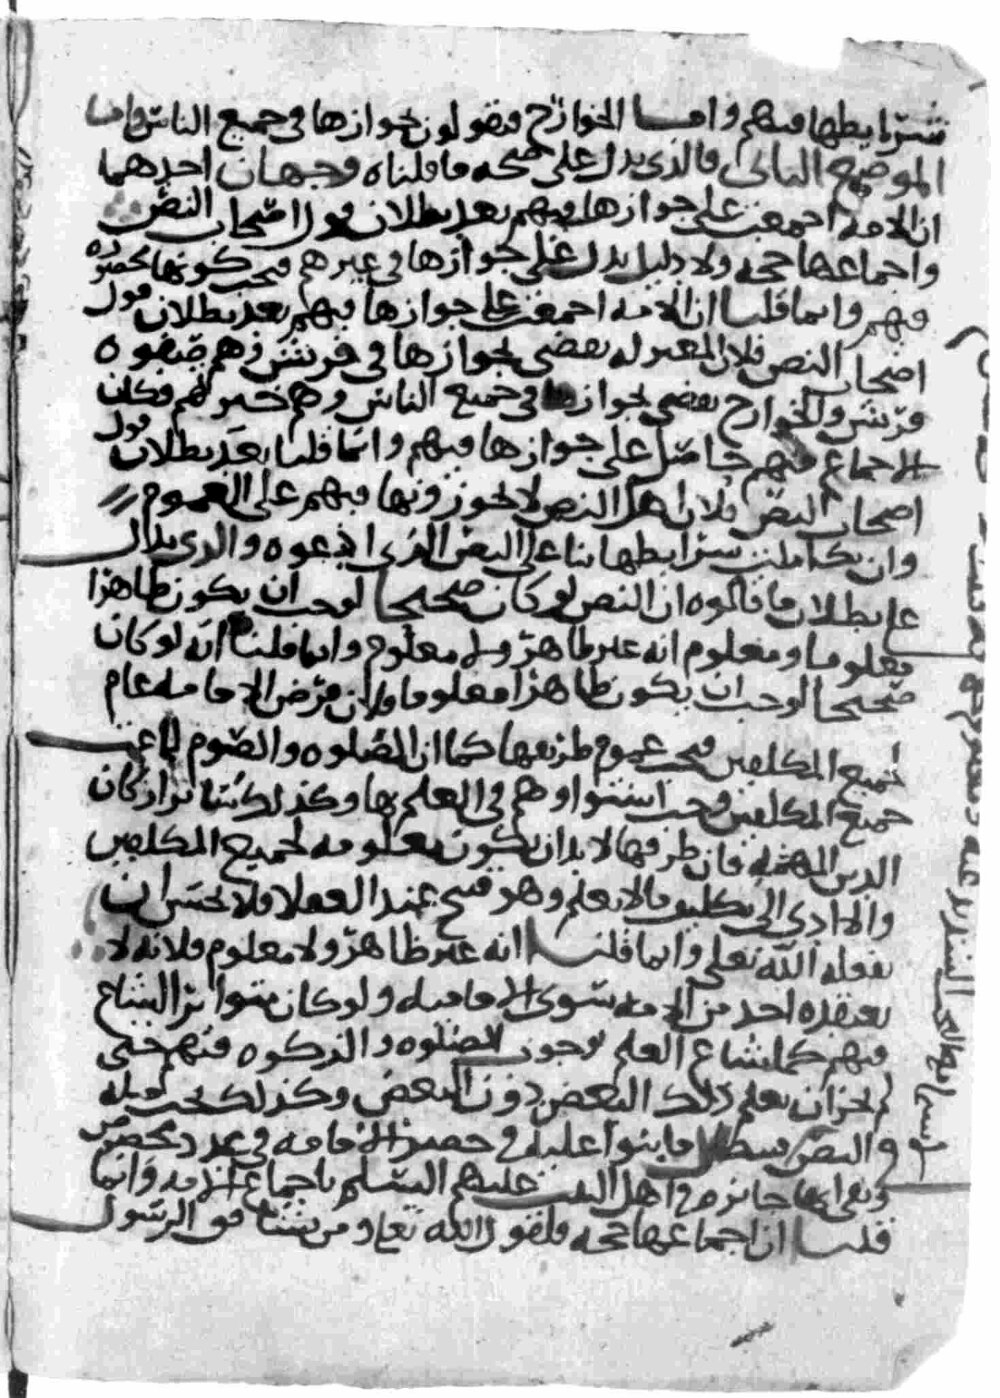 شرايطها فيهم واما الخوارج فيقولون بجوازها في جميع الناس واما
الموضع الثاني فالذي يدل على صحة ما قلناه وجهان احدهما
ان الامة اجمعت على جوازها فيهم بعد بطلان قول اصحاب النص
واجماعها حجة ولا دليل يدل على جوازها في غيرهم فيجب كونها محصورة
فيهم وانما قلنا ان الامة اجمعت على جوازها فيهم بعد بطلان قول
اصحاب النص فلان المعتزلة يقضي بجوازها في قريش وهم صفوة
قريش والخوارج يقضي بجوازها في جميع الناس وهم خيرهم فكان
الاجماع منهم حاصل على جوازها فيهم وانما قلنا بعد بطلان قول
اصحاب النص فلان اهل النص لا يجوزونها فيهم على العموم
وان تكاملت شرايطها بنا على النص الذي ادعوه والذي يدل
على بطلان ما قالوه ان النص لو كان صحيحا لوجب ان يكون ظاهرا
معلوما ومعلوم انه غير ظاهر ولا معلوم وانما قلنا انه لو كان
صحيحا لوجب ان يكون ظاهرا معلوما فلان فرض الامامة عام
لجميع المكلفين فيجب عموم طريقها كما ان الصلوة والصوم لما عمت
جميع المكلفين وجب استواوهم في العلم بها وكذلك سائر اركان
الدين المهمة فان طرقها لا بد ان يكون معلومة لجميع المكلفين
والا ادى الى تكليف ما لا يعلم وهو قبيح عند العقلا فلا يحسن ان
يفعله الله تعالى وانما قلنا انه غير ظاهر ولا معلوم فلانه لا
يعتقده احد من الامة سوى الامامية ولو كان متواترا لشاع
فيهم كما شاع العلم بوجوب الصلوة والزكوة فيهم حتى
لم يجز ان يعلم ذلك البعض دون البعض وكذلك يجب مثله
في النص فبطل ما بنوا عليه في حصر الامامة في عدد مخصوص
وبقي انها جائزة في اهل البيت عليهم السلم باجماع الامة وانما
قلنا ان اجماعها حجة فلقول الله تعالى ومن يشاقق الرسول